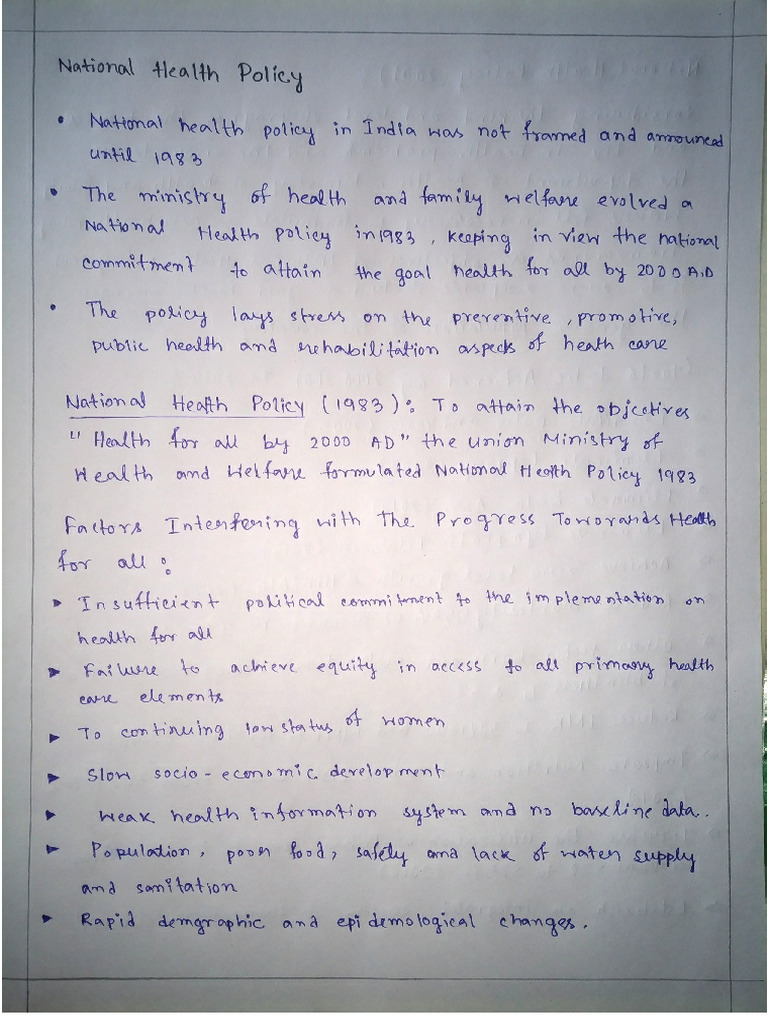 National Health Policy
• National health policy in India was not framed and announced
until 1983
• The ministry of health and family welfare evolved a
National Health policy in 1983, keeping in view the national
commitment to attain the goal health for all by 2000 A.D
• The policy lays stress on the preventive, promotive,
public health and rehabilitation aspects of heath care
National Health Policy (1983): To attain the objectives
"Health for all by 2000 AD" the union Ministry of
Health and Welfare formulated National Health Policy 1983
Factors Interfering with The Progress Toworands Health
for all:
➤ Insufficient political commitment to the implementation on
health for all
➤ Failure to achieve equity in access to all primary health
care elements
➤ To continuing low status of women
➤ Slow socio-economic development
➤ Weak health information system and no baseline data.
➤ Population, poor food, safety and lack of water supply
and sanitation
➤ Rapid demgraphic and epidemological changes.